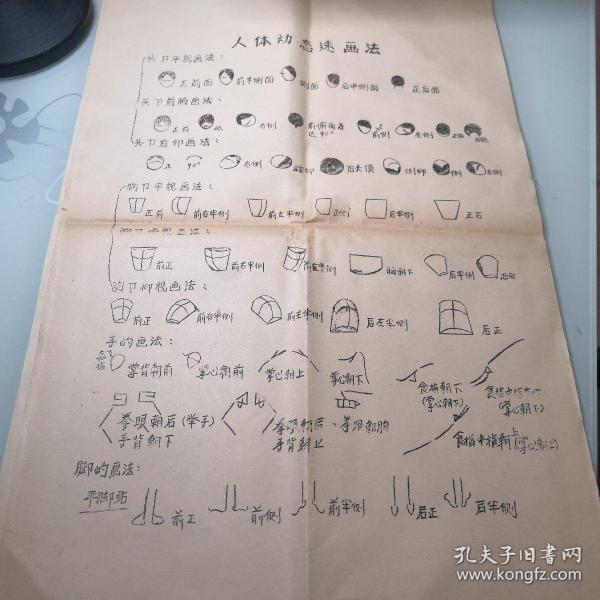 人体动态速画法
头部平视画法:
正前面 前半侧面 侧面 后半侧面 正后面
头部前俯画法:
正前 右侧 前侧 左侧
头部后仰画法:
正 90° 右侧 后头顶 侧仰 侧 左侧
胸部平视画法:
正前 前右半侧 前左半侧 正侧 后半侧 正后
胸部俯视画法:
前正 前右半侧 前左半侧 胸朝下 后半侧 正后
胸部仰视画法:
前正 前右半侧 前左半侧 后左半侧 后正
手的画法:
掌背朝前 掌心朝前 掌心朝上 掌心朝下 食指朝下
(掌心朝下) (掌心朝下)
拳眼朝后(举手) 拳眼朝后 拳眼朝胸
手背朝下 手背朝上 食指中指朝上(掌心朝上)
脚的画法:
平脚站
前正 前侧 前半侧 后正 后半侧
孔夫子旧书网
www.kongfz.com